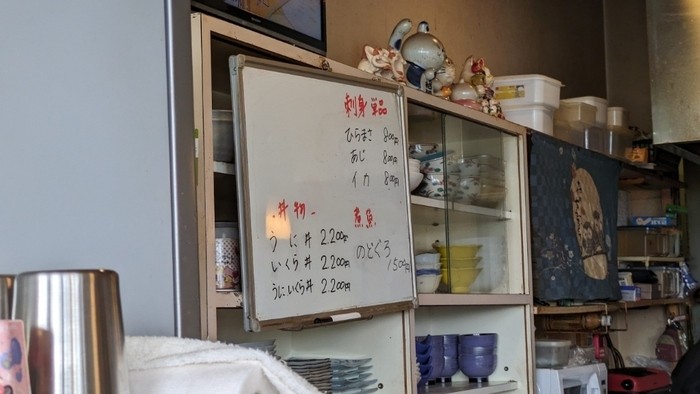 刺身単品
ひらまさ 800円
あじ 800円
イカ 800円
-丼物-
うに丼 2.200円
いくら丼 2.200円
うにいくら丼 2.200円
煮魚
のどぐろ
1500円